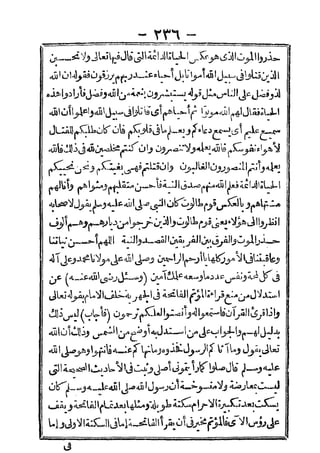 - ٢٣٦ -
حذروا الموت الذى هو عكس الحياة الدائمة التى قال فيها تعالى ولا تحسبن
الذين قتلوا فى سبيل الله أمواتا بل أحياء عند ربهم يرزقون فقوله ان الله
لذو فضل على الناس مثل قوله يستبشرون بنعمة من الله وفضل فأرادوا هذه
فقال لهم الله موتوا ثم أحياهم أى قاتلوا فى سبيل الله واعلموا أن الله
سميع عليم أى يسمع دعاءكم ويعلم ما فى قلوبكم فان كان طلبكم للقتال
لأهواء نفوسكم فالله يعلمه ولا تنصرون وان كنتم مخلصين لله فى ذلك فالله
يعلمه وأنتم المنصورون الغالبون وان قتلتم فهى بغيتكم ونحن نحييكم
الحياة الدائمة فعلم الله منهم صدق النية فأحسن منقلبهم ومثواهم وأنالهم
مشتهاهم وبالعكس قوم طالوت كان النبى صلى الله عليه وسلم يقول لأصحابه
انظروا الى هؤلاء يعنى قوم طالوت والذين خرجوا من ديارهم وهم ألوف
حذر الموت والفرق بين الفريقين القصد والنية اللهم أحسن نياتنا
وعاقبتنا فى الأمور كلها يا أرحم الراحمين وصلى الله على مولانا محمد وعلى آله
فى كل لمحة ونفس عدد ما وسعه علمك آمين (وسئل رضى الله عنه) عن
استدلال من منع قراءة المؤتم الفاتحة فى الجهر به خلف الامام بقوله تعالى
واذا قرئ القرآن فاستمعوا له وأنصتوا لعلكم ترحمون (فأجاب) ليس ذلك
بدليل لهم والجواب على من استدل به أوضح من الشمس وذلك أن الله
تعالى يقول وما آتاكم الرسول فخذوه وما نهاكم عنه فانتهوا وهو صلى الله
عليه وسلم قال صلوا كما رأيتمونى أصلى وثبت فى الأحاديث الصحيحة التى
ليست بمعارضة ولا منسوخة أن رسول الله صلى الله عليه وسلم كان
يسكت بعد تكبيرة الاحرام سكتة طويلة ومثلها بعد تمام الفاتحة ويقف
على رؤس الآى فالمؤتم مخير فى أن يقرأ الفاتحة اما فى السكتة الاولى واما
فى